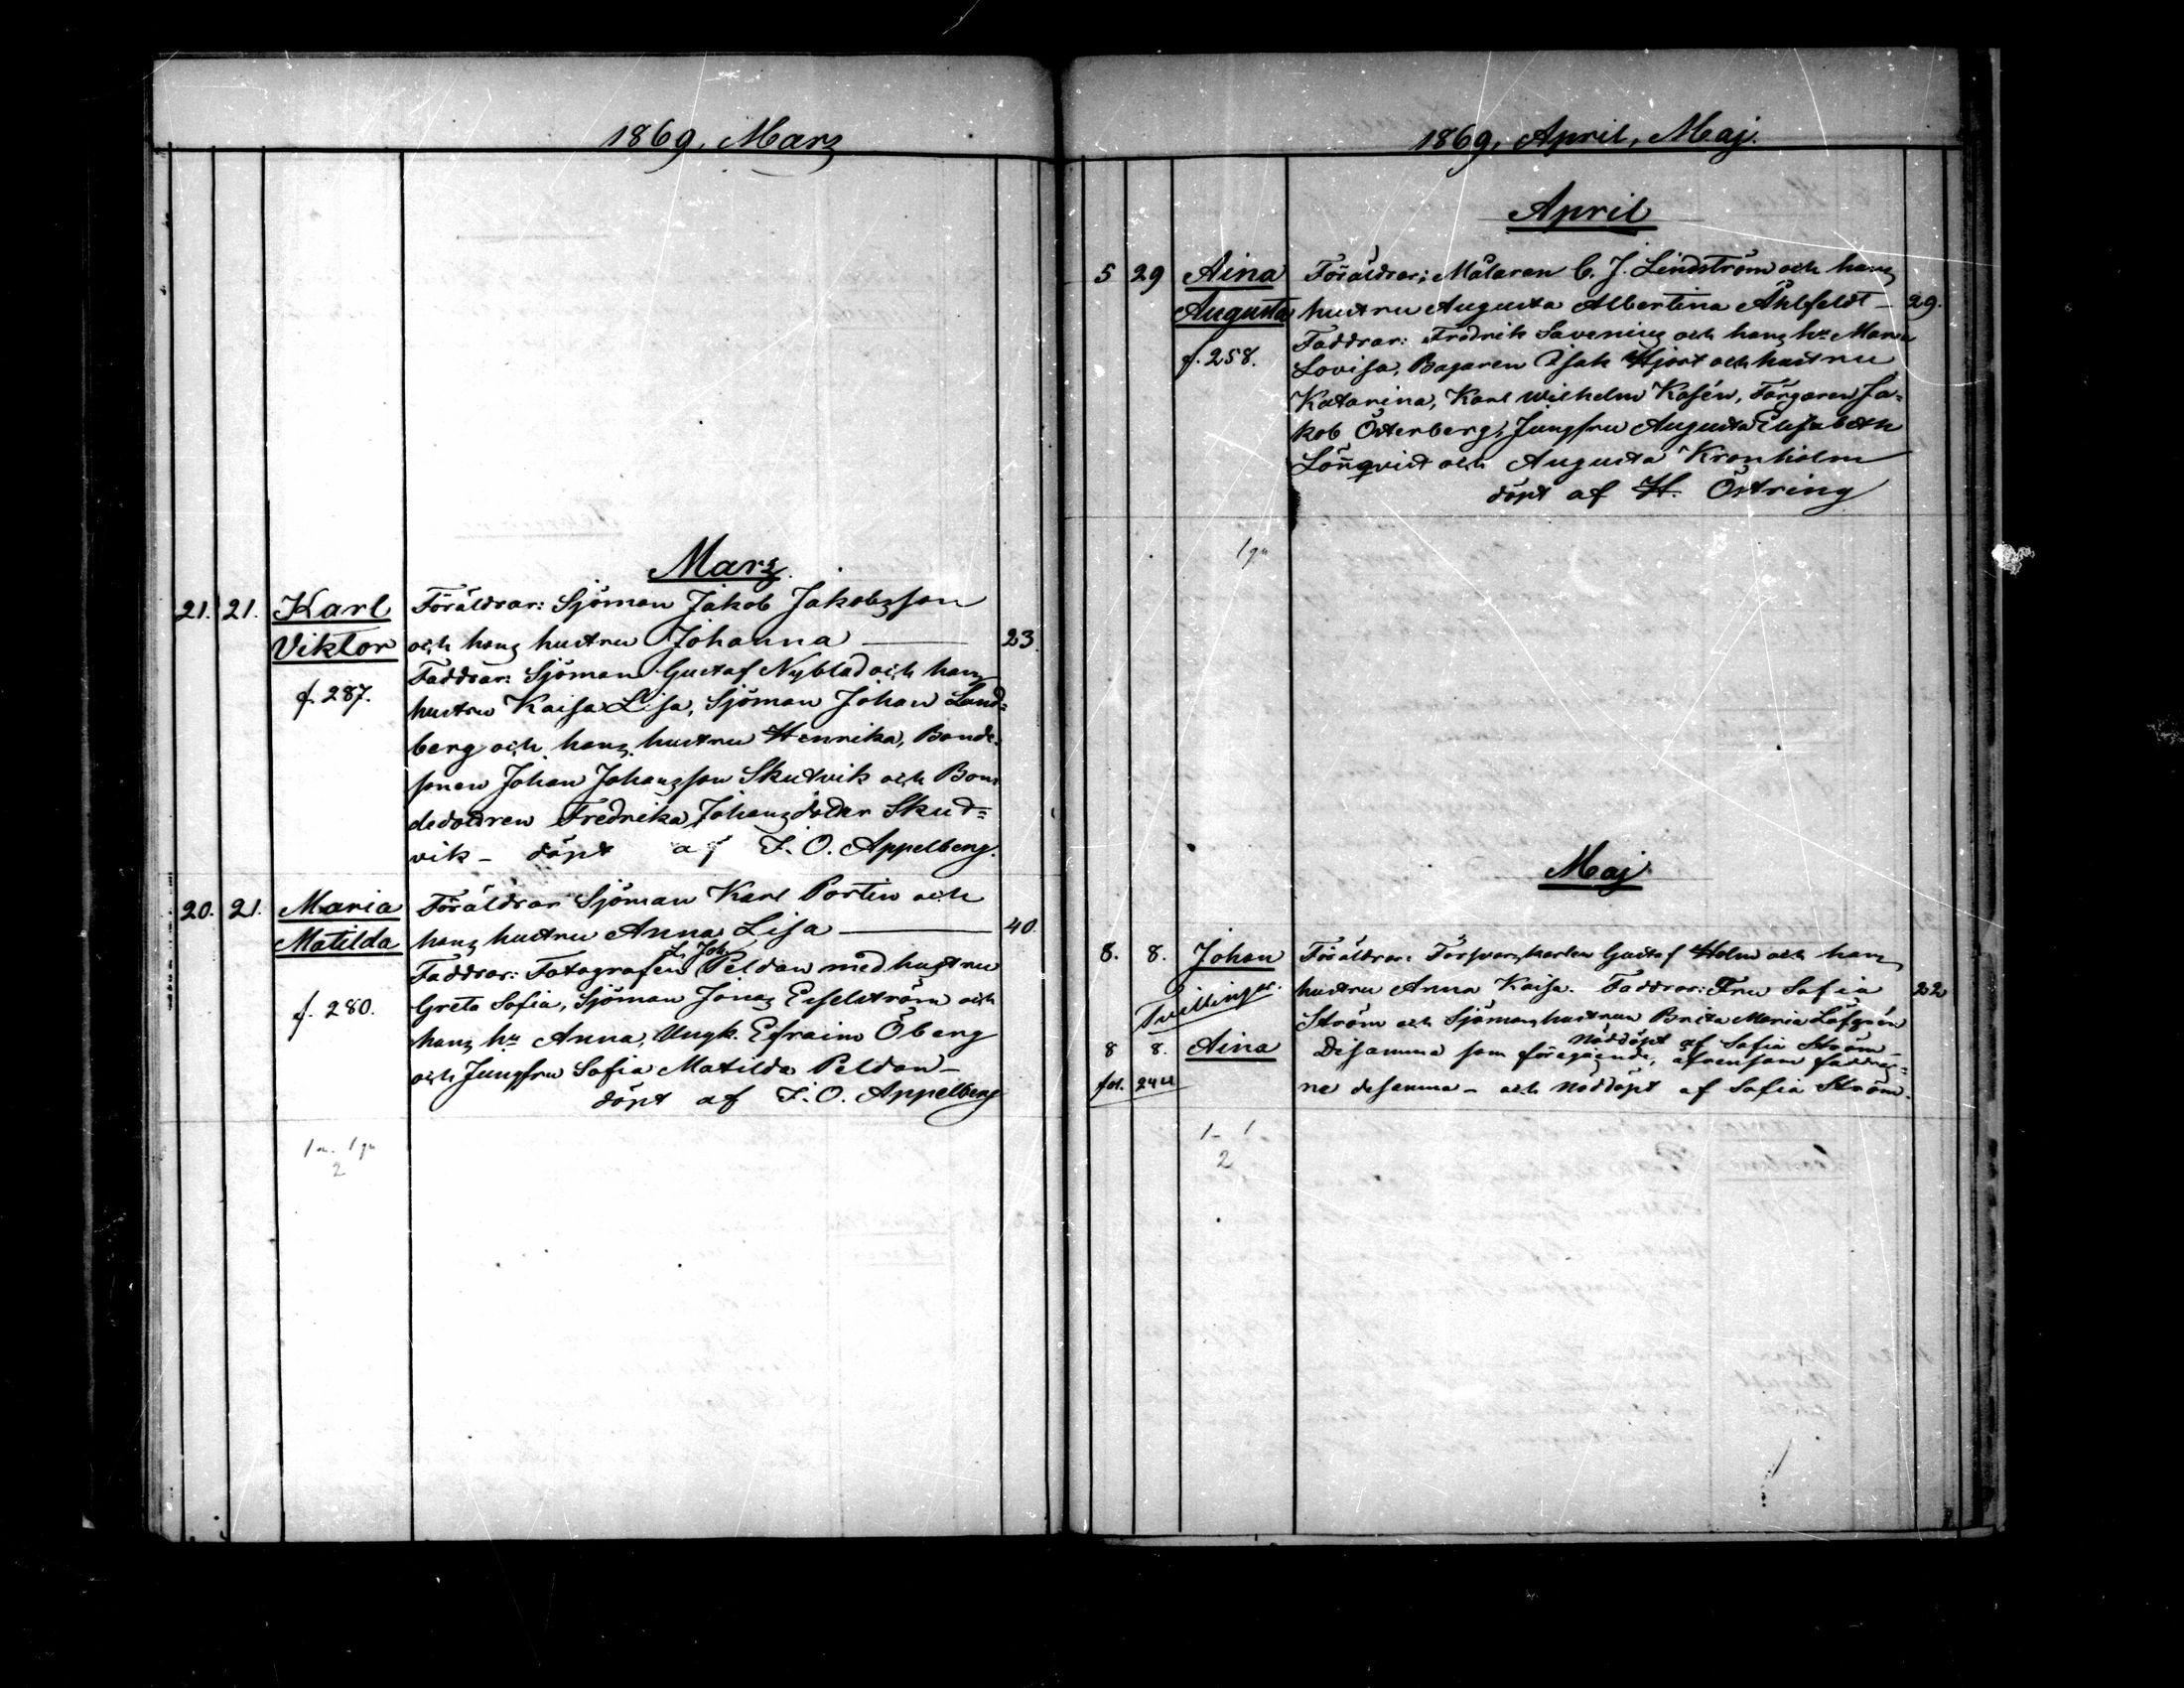 1869, Marz
Marz.
21. 21. Karl Föräldrar: Sjöman Jakob Jakobsson
Viktor och hans hustru Johanna — 23.
Faddrar: Sjöman Gustaf Nyblad och hans
f. 287. hustru Kaisa Lisa, Sjöman Johan Sand=
berg och hans hustru Henrika, Bonde-
sonen Johan Johansson Skutvik och Bon=
dedottren Fredrika Johansdotter Skut=
vik – döpt af F. O. Appelberg.
20. 21. Maria Föräldrar Sjöman Karl Portin och
Matilda hans hustru Anna Lisa — 40.
Joh
Faddrar: Fotografen Peldan med hustru
Greta Sofia, Sjöman Jonas Esselström och
f. 280. hans hu Anna, Ungk. Efraim Öberg
och Jungfru Sofia Matilda Peldan –
döpt af F. O. Appelberg
1 m. 1 qu
2
1869, April, Maj.
April
5 29 Aina Föräldrar: Målaren C. J. Lindström och hans
Augusta hustru Augusta Albertina Åhlfeldt – 29.
Faddrar: Fredrik Savenius och hans hu Maria
f. 258. Lovisa, Bagaren Isak Hjort och hustru
Katarina, Karl Wilhelm Kasén, Färgaren Ja=
kob Österberg, Jungfru Augusta Elisabeth
Lönnqvist och Augusta Kronholm
döpt af H. Östring
1 qu
Maj
8. 8. Johan Föräldrar: Försvarskarlen Gustaf Holm och hans
Tvillingar. hustru Anna Kaisa. Faddrar: Fru Sofia 22
Ström och Sjömanshustrun Brita Maria Löfgrén
Nöddöpt af Sofia Ström –
8 8. Aina Desamma som föregående, äfvensom faddrar=
fol. ne desamma – och nöddöpt af Sofia Ström.
1 – 1
2